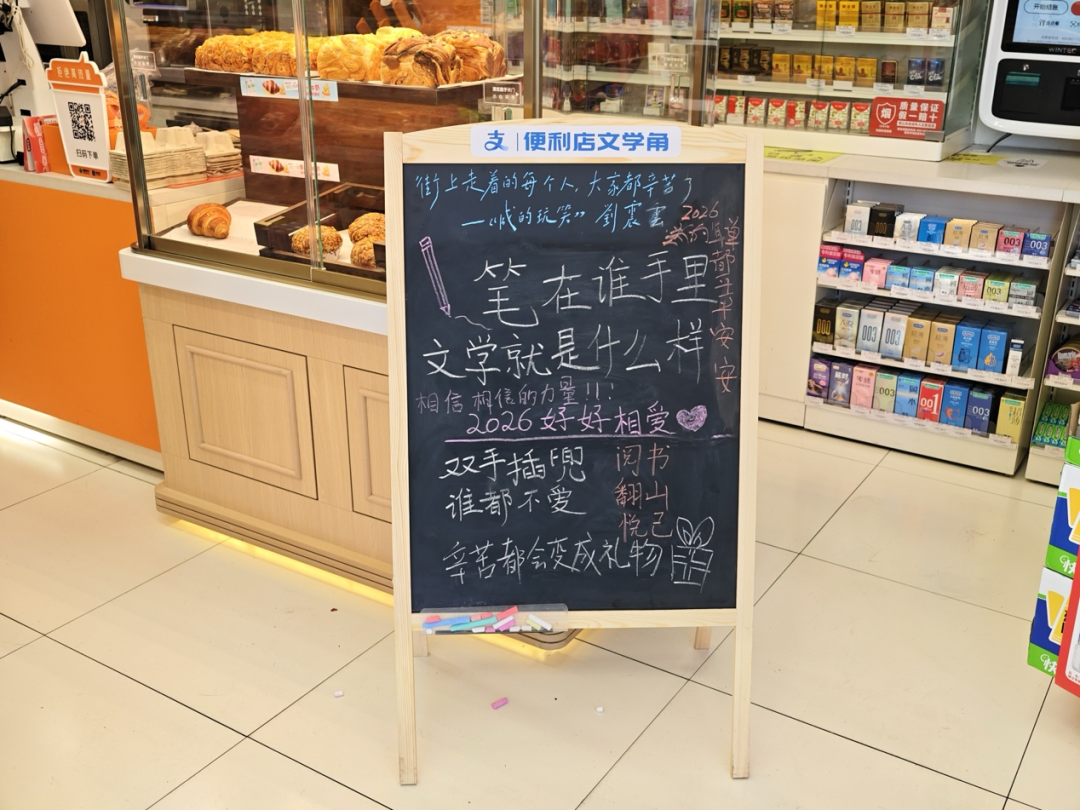 支 | 便利店文学角
街上走着的每个人，大家都辛苦了
—《喊的玩笑》 劉震雲
2026
都平平安安
笔在谁手里
文学就是什么样
相信相信的力量！！！
2026好好相爱
双手插兜
谁都不爱
阅书
翻山
悦己
辛苦都会变成礼物
扫码下单
质量保证
假一赔十
开始结账
003
003
003
003
001
003